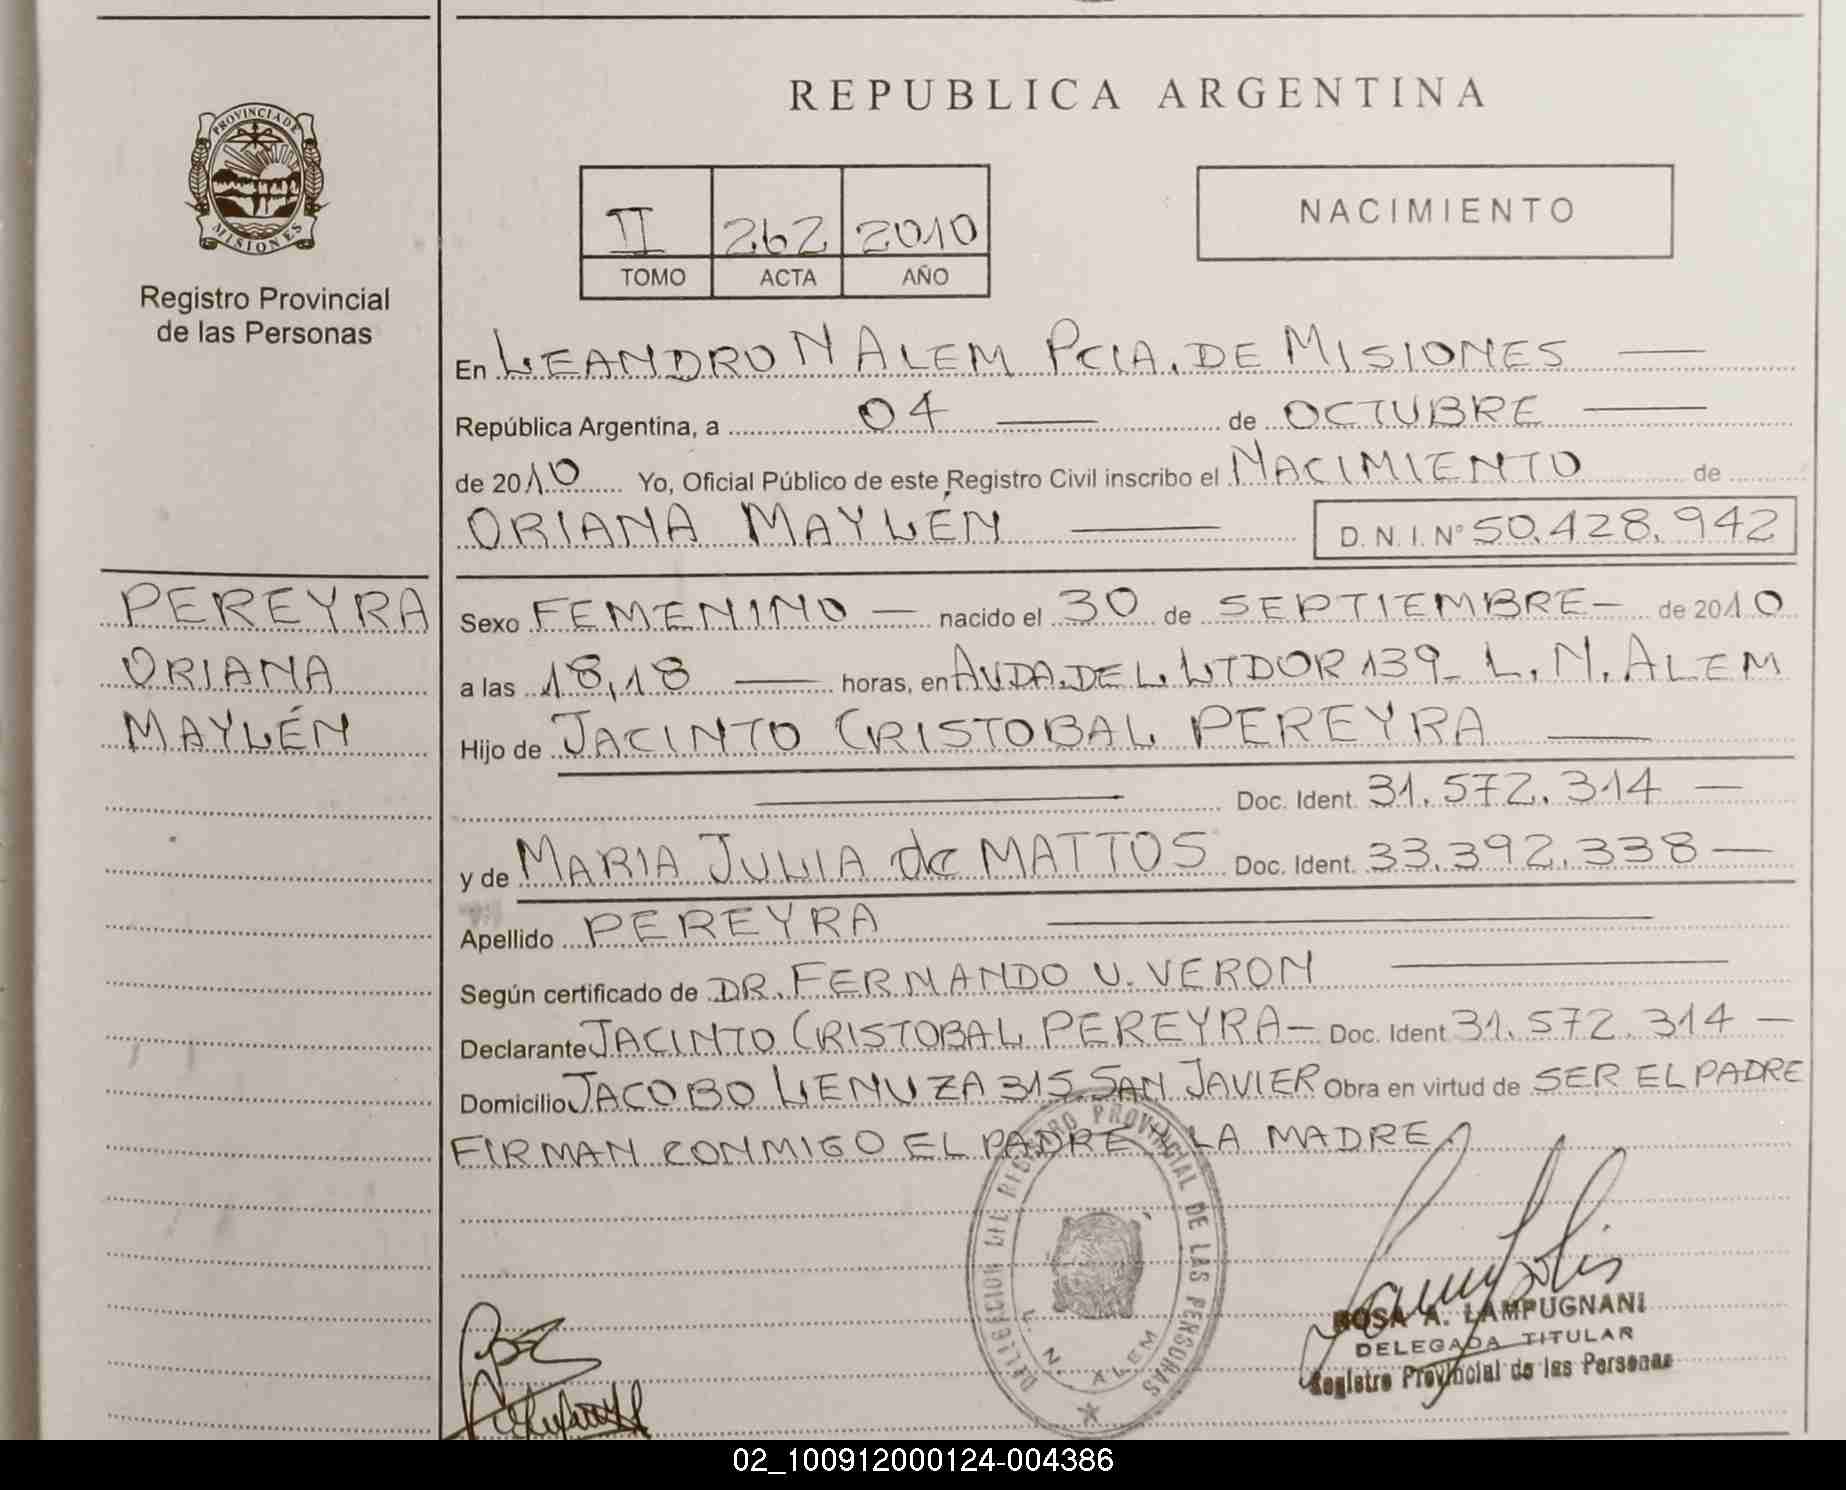 REPUBLICA ARGENTINA
PROVINCIA DE
MISIONES
Registro Provincial
de las Personas
II 262 2010
TOMO ACTA AÑO
NACIMIENTO
En LEANDRO N ALEM PCIA. DE MISIONES
República Argentina, a 04 de OCTUBRE
de 2010 Yo, Oficial Público de este Registro Civil inscribo el NACIMIENTO de
ORIANA MAYLÉN D.N.I. Nº 50.428.942
PEREYRA
ORIANA
MAYLÉN
Sexo FEMENINO — nacido el 30 de SEPTIEMBRE - de 2010
a las 18,18 horas, en AVDA. DEL LTDOR 139_ L. N. ALEM
Hijo de JACINTO CRISTOBAL PEREYRA
Doc. Ident. 31.572.314 —
y de MARIA JULIA de MATTOS Doc. Ident. 33.392.338 —
Apellido PEREYRA
Según certificado de DR. FERNANDO U. VERON
Declarante JACINTO CRISTOBAL PEREYRA - Doc. Ident 31.572.314 —
Domicilio JACOBO LENUZA 315. SAN JAVIER Obra en virtud de SER EL PADRE
FIRMAN CONMIGO EL PADRE Y LA MADRE
DELEGACION DEL REGISTRO PROVINCIAL DE LAS PERSONAS
L. N. ALEM
ROSA A. LAMPUGNANI
DELEGADA TITULAR
Registro Provincial de las Personas
02_100912000124-004386